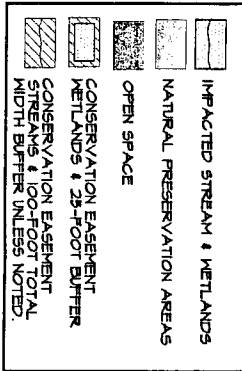 IMPACTED STREAM & WETLANDS
NATURAL PRESERVATION AREAS
OPEN SPACE
CONSERVATION EASEMENT
WETLANDS & 25-FOOT BUFFER
CONSERVATION EASEMENT
STREAMS & 100-FOOT TOTAL
WIDTH BUFFER UNLESS NOTED.